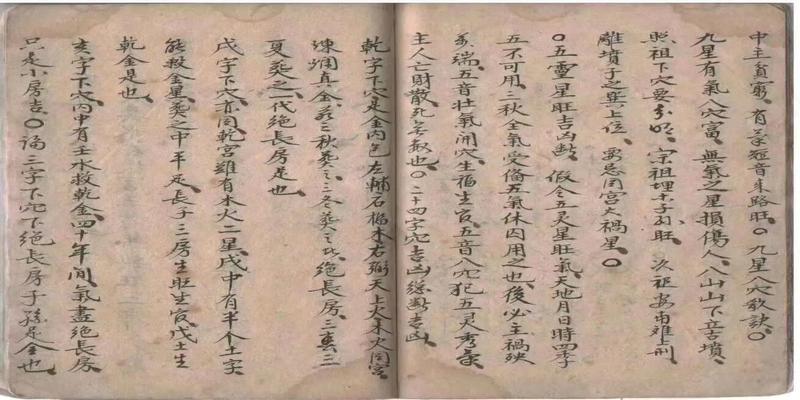 中主貧窮有 音來路旺〇九星八穴敗訣〇
九星有氣八穴富無氣之星損傷人八山山下立舌墳
照祖下穴要分明宗祖埋 子 旺久祖安 雖上
離墳子之 上 要忌用宮大禍星〇
〇五靈星旺吉凶 假令五灵星旺氣天地月日時四季
五不可用三秋金氣受傷五氣休囚用之也後必主禍殃
 端五音壯氣開穴生福生 五音八穴犯五灵考
主人亡財散死 也〇二十四字穴吉凶 吉凶
乾字下穴是金肉 左輔石 木右弼天上火來火 宮
煉爛真金若三秋葬之三冬葬之 絕長房三 三
夏葬之一代絕長房是也
戌字下穴亦同乾宮雖有木火二星戌中有半个土字
能救金星葬之中年 長子三房生旺生 戊土生
乾金是也
亥字下穴內中有壬水救乾金四十年間氣盡絕長房
只是小房吉〇 三字下穴下絕長房子孫是全也